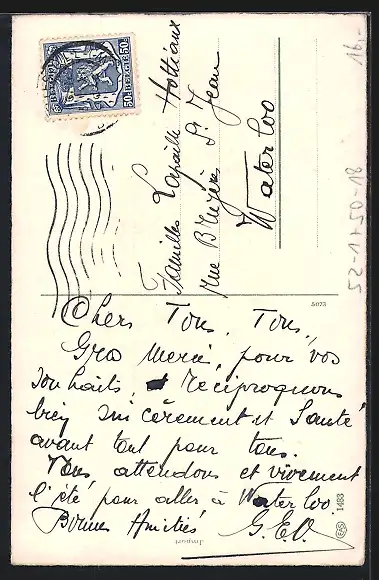 BELGIQUE-BELGIE
50c 50c
Familles Lapaille Hottiaux
Rue Bruyère St Jean
Waterloo
16.-
52-1+50-18
5073
Chers Tous, Tous,
Gros merci, pour vos
souhaits, réciproquons
bien sincèrement et Santé
avant tout pour tous.
Nous attendons et vivement
l'été pour aller à Waterloo.
Bonnes Amitiés G.
Import
EAS 1483